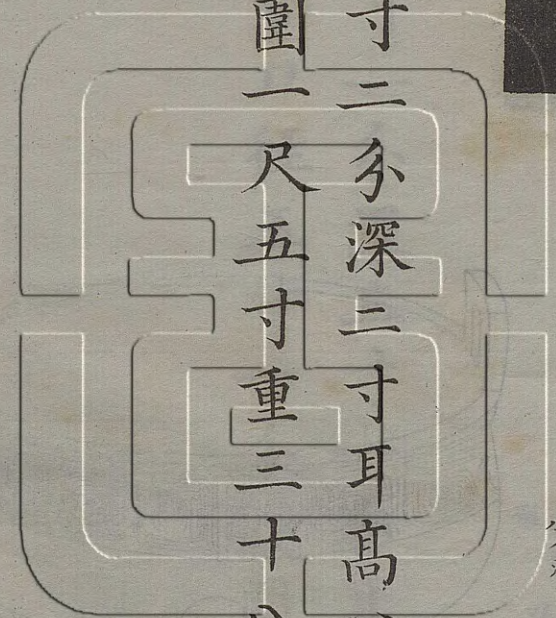 寸二分深二寸耳髙
圍一尺五寸重三十